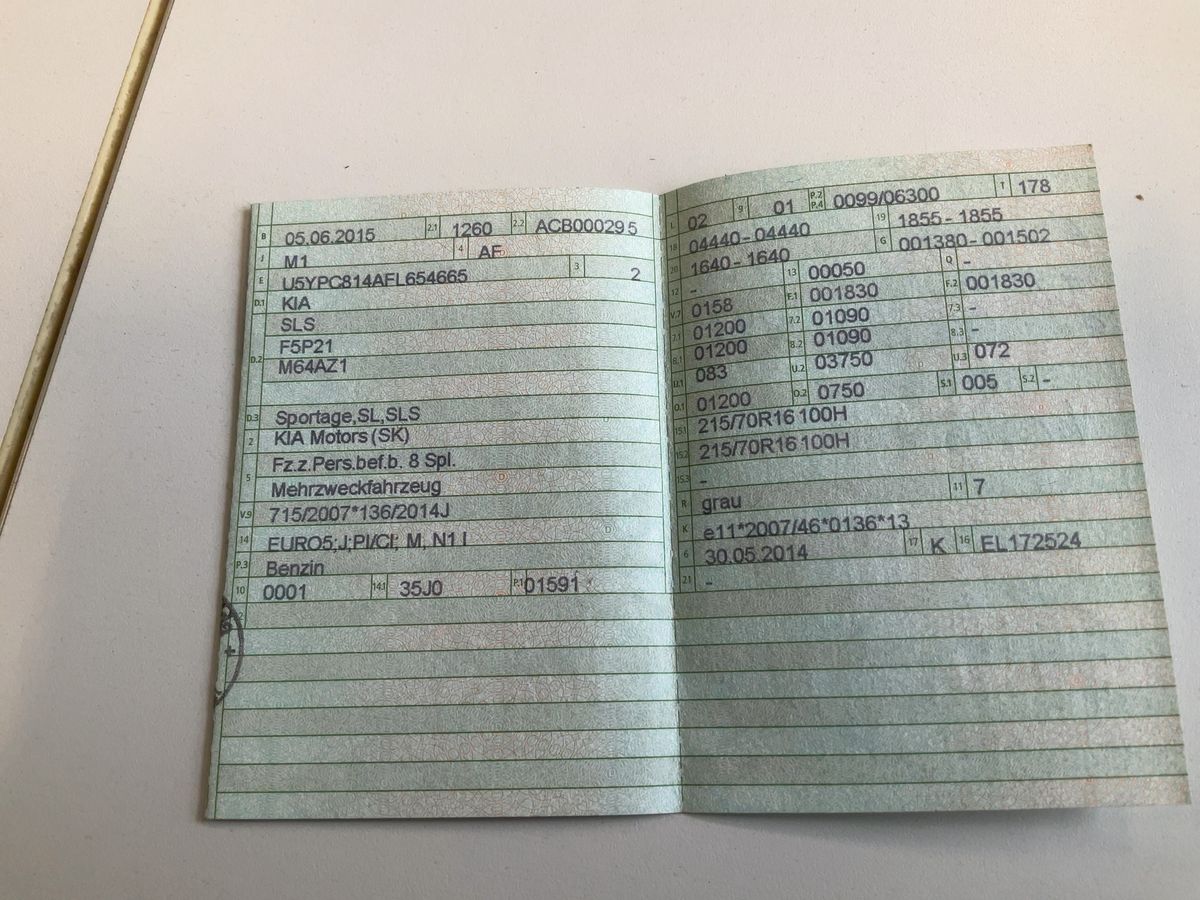 B 05.06.2015 2.1 1260 2.2 ACB000295
J M1 4 AF
E U5YPC814AFL654665 3 2
D.1 KIA
SLS
D.2 F5P21
M64AZ1
D.3 Sportage,SL,SLS
2 KIA Motors (SK)
5 Fz.z.Pers.bef.b. 8 Spl.
Mehrzweckfahrzeug
V.9 715/2007*136/2014J
14 EURO5;J;PI/CI; M, N1 I
P.3 Benzin
10 0001 14.1 35J0 P.1 01591
L 02 9 01 P.2 P.4 0099/06300 T 178
18 04440-04440 19 1855-1855
20 1640-1640 G 001380-001502
12 - 13 00050 Q -
V.7 0158 F.1 001830 F.2 001830
7.1 01200 7.2 01090 7.3 -
8.1 01200 8.2 01090 8.3 -
U.1 083 U.2 03750 U.3 072
O.1 01200 O.2 0750 S.1 005 S.2 -
15.1 215/70R16 100H
15.2 215/70R16 100H
15.3 -
R grau 11 7
K e11*2007/46*0136*13
6 30.05.2014 17 K 16 EL172524
21 -